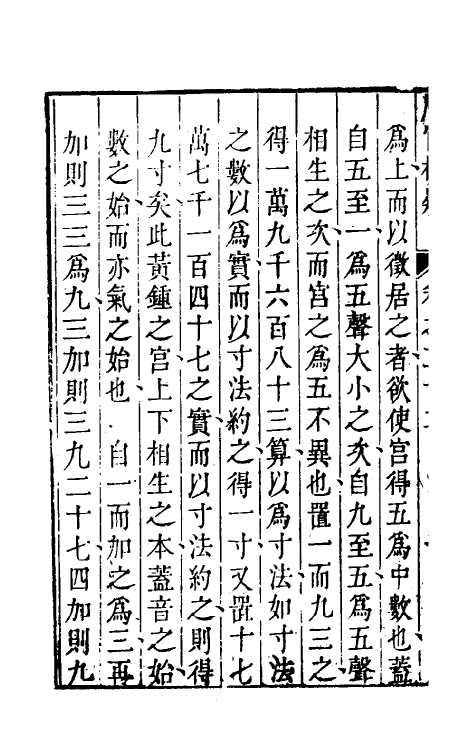 為上而以徵居之者欲使宫得五為中數也葢
自五至一為五聲大小之次自九至五為五聲
相生之次而宫之為五不異也置一而九三之
得一萬九千六百八十三算以為寸法如寸法
之數以為實而以寸法約之得一寸又置十七
萬七千一百四十七之實而以寸法約之則得
九寸矣此黃鍾之宫上下相生之本蓋音之始
數之始而亦氣之始也 自一而加之為三再
加則三三為九三加則三九二十七四加則九